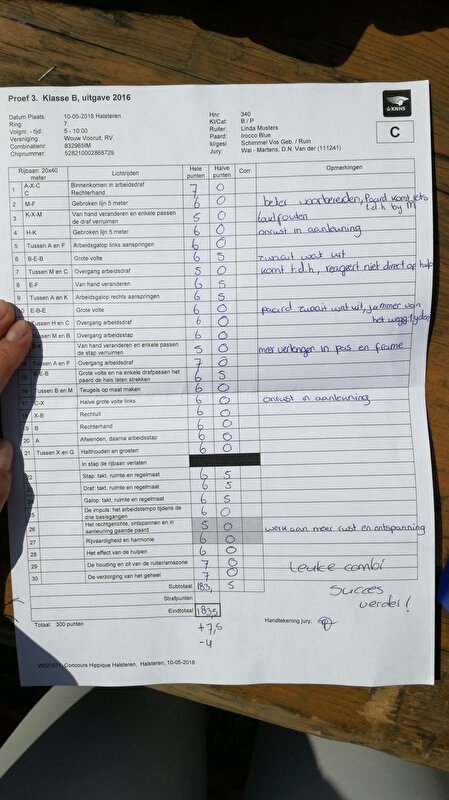 Proef 3. Klasse B, uitgave 2016
KNHS
Datum Plaats: 10-05-2018 Halsteren Hnr: 340
Ring: 7 Kl/Cat: B / P
Volgnr. - tijd: 5 - 10:00 Ruiter: Linda Musters
Vereniging: Wouw Vooruit, RV. Paard: Irocco Blue
Combinatienr: 832965IM kl/gesl Schimmel Vos Geb. / Ruin
Chipnummer: 528210002868729 Jury: Wal - Martens, D.N. Van der (111241)
C
Rijbaan: 20x40 meter Lichtrijden Hele punten Halve punten Corr. Opmerkingen
1 A-X-C Binnenkomen in arbeidsdraf 7 0
C Rechterhand
2 M-F Gebroken lijn 5 meter 6 0 beter voorbereiden, Paard komt iets t.d.h. bij M
3 K-X-M Van hand veranderen en enkele passen de draf verruimen 5 0 taktfouten
4 H-K Gebroken lijn 5 meter 6 0 onrust in aanleuning
5 Tussen A en F Arbeidsgalop links aanspringen 6 0
6 B-E-B Grote volte 6 5 zwaait wat uit
7 Tussen M en C Overgang arbeidsdraf 5 0 komt t.d.h, reageert niet direct op hulp
8 E-F Van hand veranderen 6 5
9 Tussen A en K Arbeidsgalop rechts aanspringen 6 5
E-B-E Grote volte 6 0 paard zwaait wat uit, jammer van het
Tussen H en C Overgang arbeidsdraf 6 0
Tussen M en B Overgang arbeidsstap 6 0
Van hand veranderen en enkele passen de stap verruimen 5 0 meer verlangen in pas en frame
Tussen A en F Overgang arbeidsdraf 7 0
B-E-B Grote volte en na enkele drafpassen het paard de hals laten strekken 6 5
16 Tussen B en M Teugels op maat maken 6 0
17 C-X Halve grote volte links 6 0 onrust in aanleuning
18 X-B Rechtuit 6 0
19 B Rechterhand 6 0
20 A Afwenden, daarna arbeidsstap 6 0
21 Tussen X en G Halthouden en groeten 6 0
In stap de rijbaan verlaten
22 Stap: takt, ruimte en regelmaat 6 5
23 Draf: takt, ruimte en regelmaat 6 5
24 Galop: takt, ruimte en regelmaat 6 5
25 De impuls: het arbeidstempo tijdens de drie basisgangen 6 0
26 Het rechtgerichte, ontspannen en in aanleuning gaande paard 5 0 werk aan meer rust en ontspanning
27 Rijvaardigheid en harmonie 6 0
28 Het effect van de hulpen 6 0
29 De houding en zit van de ruiter/amazone 7 0 Leuke combi
30 De verzorging van het geheel 7 0
Subtotaal 183, 5 Succes verder!
Strafpunten
Eindtotaal 183,5
Totaal: 300 punten Handtekening jury:
+7,5
-4
Concours Hippique Halsteren, Halsteren, 10-05-2018